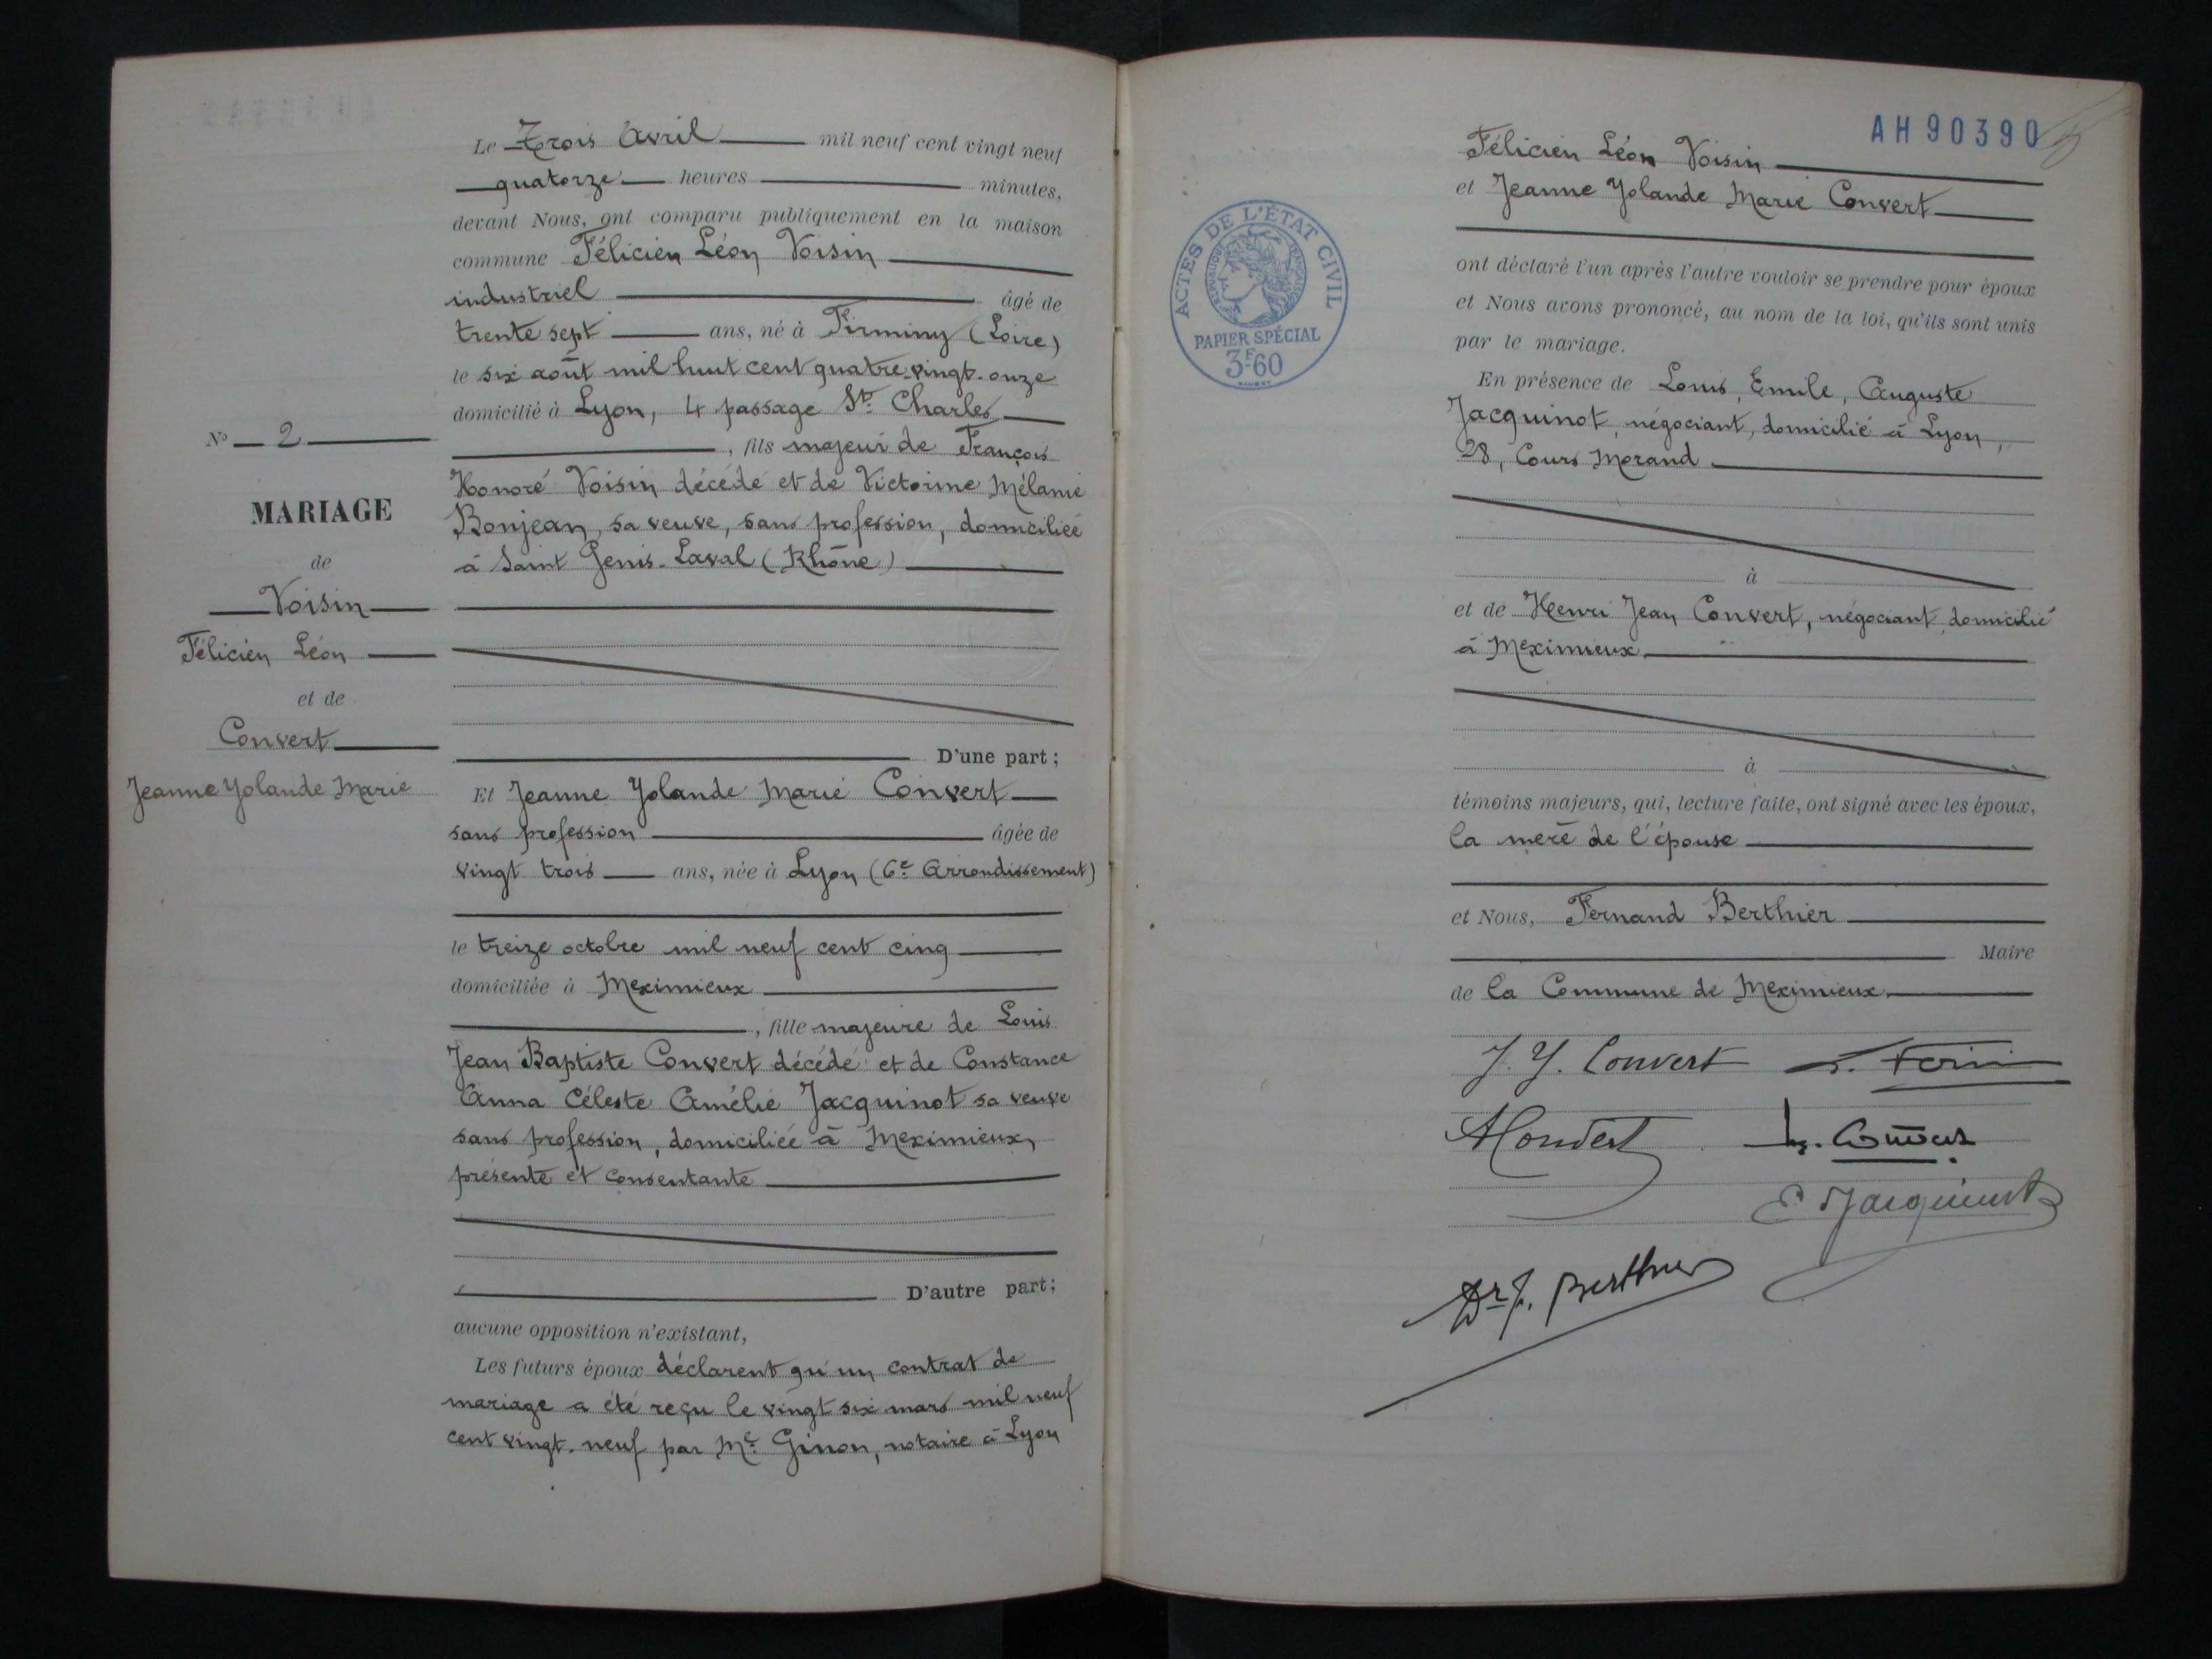 Le Trois Avril mil neuf cent vingt neuf
quatorze heures minutes,
devant Nous, ont comparu publiquement en la maison
commune Félicien Léon Voisin
industriel âgé de
trente sept ans, né à Firminy (Loire)
le six août mil huit cent quatre-vingt-onze
domicilié à Lyon, 4 passage St. Charles
, fils majeur de François
Honoré Voisin décédé et de Victorine Mélanie
Bonjean, sa veuve, sans profession, domiciliée
à Saint Genis-Laval (Rhône)
D'une part ;
Et Jeanne Yolande Marie Convert
sans profession âgée de
vingt trois ans, née à Lyon (6e Arrondissement)
le treize octobre mil neuf cent cinq
domiciliée à Meximieux
, fille majeure de Louis
Jean Baptiste Convert décédé et de Constance
Anna Céleste Amélie Jacquinot sa veuve
sans profession, domiciliée à Meximieux,
présente et consentante
D'autre part ;
aucune opposition n'existant,
Les futurs époux déclarent qu'un contrat de
mariage a été reçu le vingt six mars mil neuf
cent vingt-neuf par Me Ginon, notaire à Lyon
No 2
MARIAGE
de
Voisin
Félicien Léon
et de
Convert
Jeanne Yolande Marie
AH 90390
Félicien Léon Voisin
et Jeanne Yolande Marie Convert
ont déclaré l'un après l'autre vouloir se prendre pour époux
et Nous avons prononcé, au nom de la loi, qu'ils sont unis
par le mariage.
En présence de Louis, Emile, Auguste
Jacquinot, négociant, domicilié à Lyon,
28, Cours Morand
à
et de Henri Jean Convert, négociant, domicilié
à Meximieux
à
témoins majeurs, qui, lecture faite, ont signé avec les époux,
la mère de l'épouse
et Nous, Fernand Berthier
Maire
de la Commune de Meximieux
J. Y. Convert
E Jacquinot
Dr F. Berthier
ACTES DE L'ÉTAT CIVIL
REPUBLIQUE FRANÇAISE
PAPIER SPÉCIAL
3F60